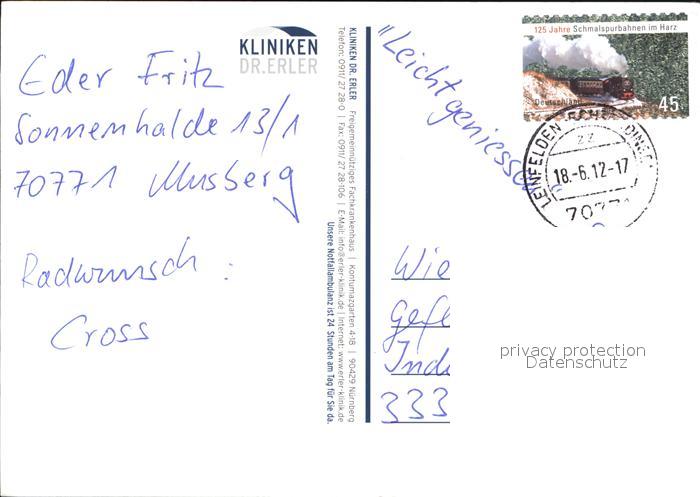 Eder Fritz
Sonnenhalde 13/1
70771 Musberg
Radwunsch :
Cross
KLINIKEN
DR. ERLER
KLINIKEN DR. ERLER Freigemeinnütziges Fachkrankenhaus | Kontumazgarten 4-18 | 90429 Nürnberg
Telefon: 0911/ 27 28-0 | Fax: 0911/ 27 28-106 | E-Mail: info@erler-klinik.de | Internet: www.erler-klinik.de
Unsere Notfallambulanz ist 24 Stunden am Tag für Sie da.
"Leicht geniessen
125 Jahre Schmalspurbahnen im Harz
Deutschland
45
LEINFELDEN-ECHTERDINGEN
zz
18.-6.12-17
70771
Wie
Gefl
333
privacy protection
Datenschutz